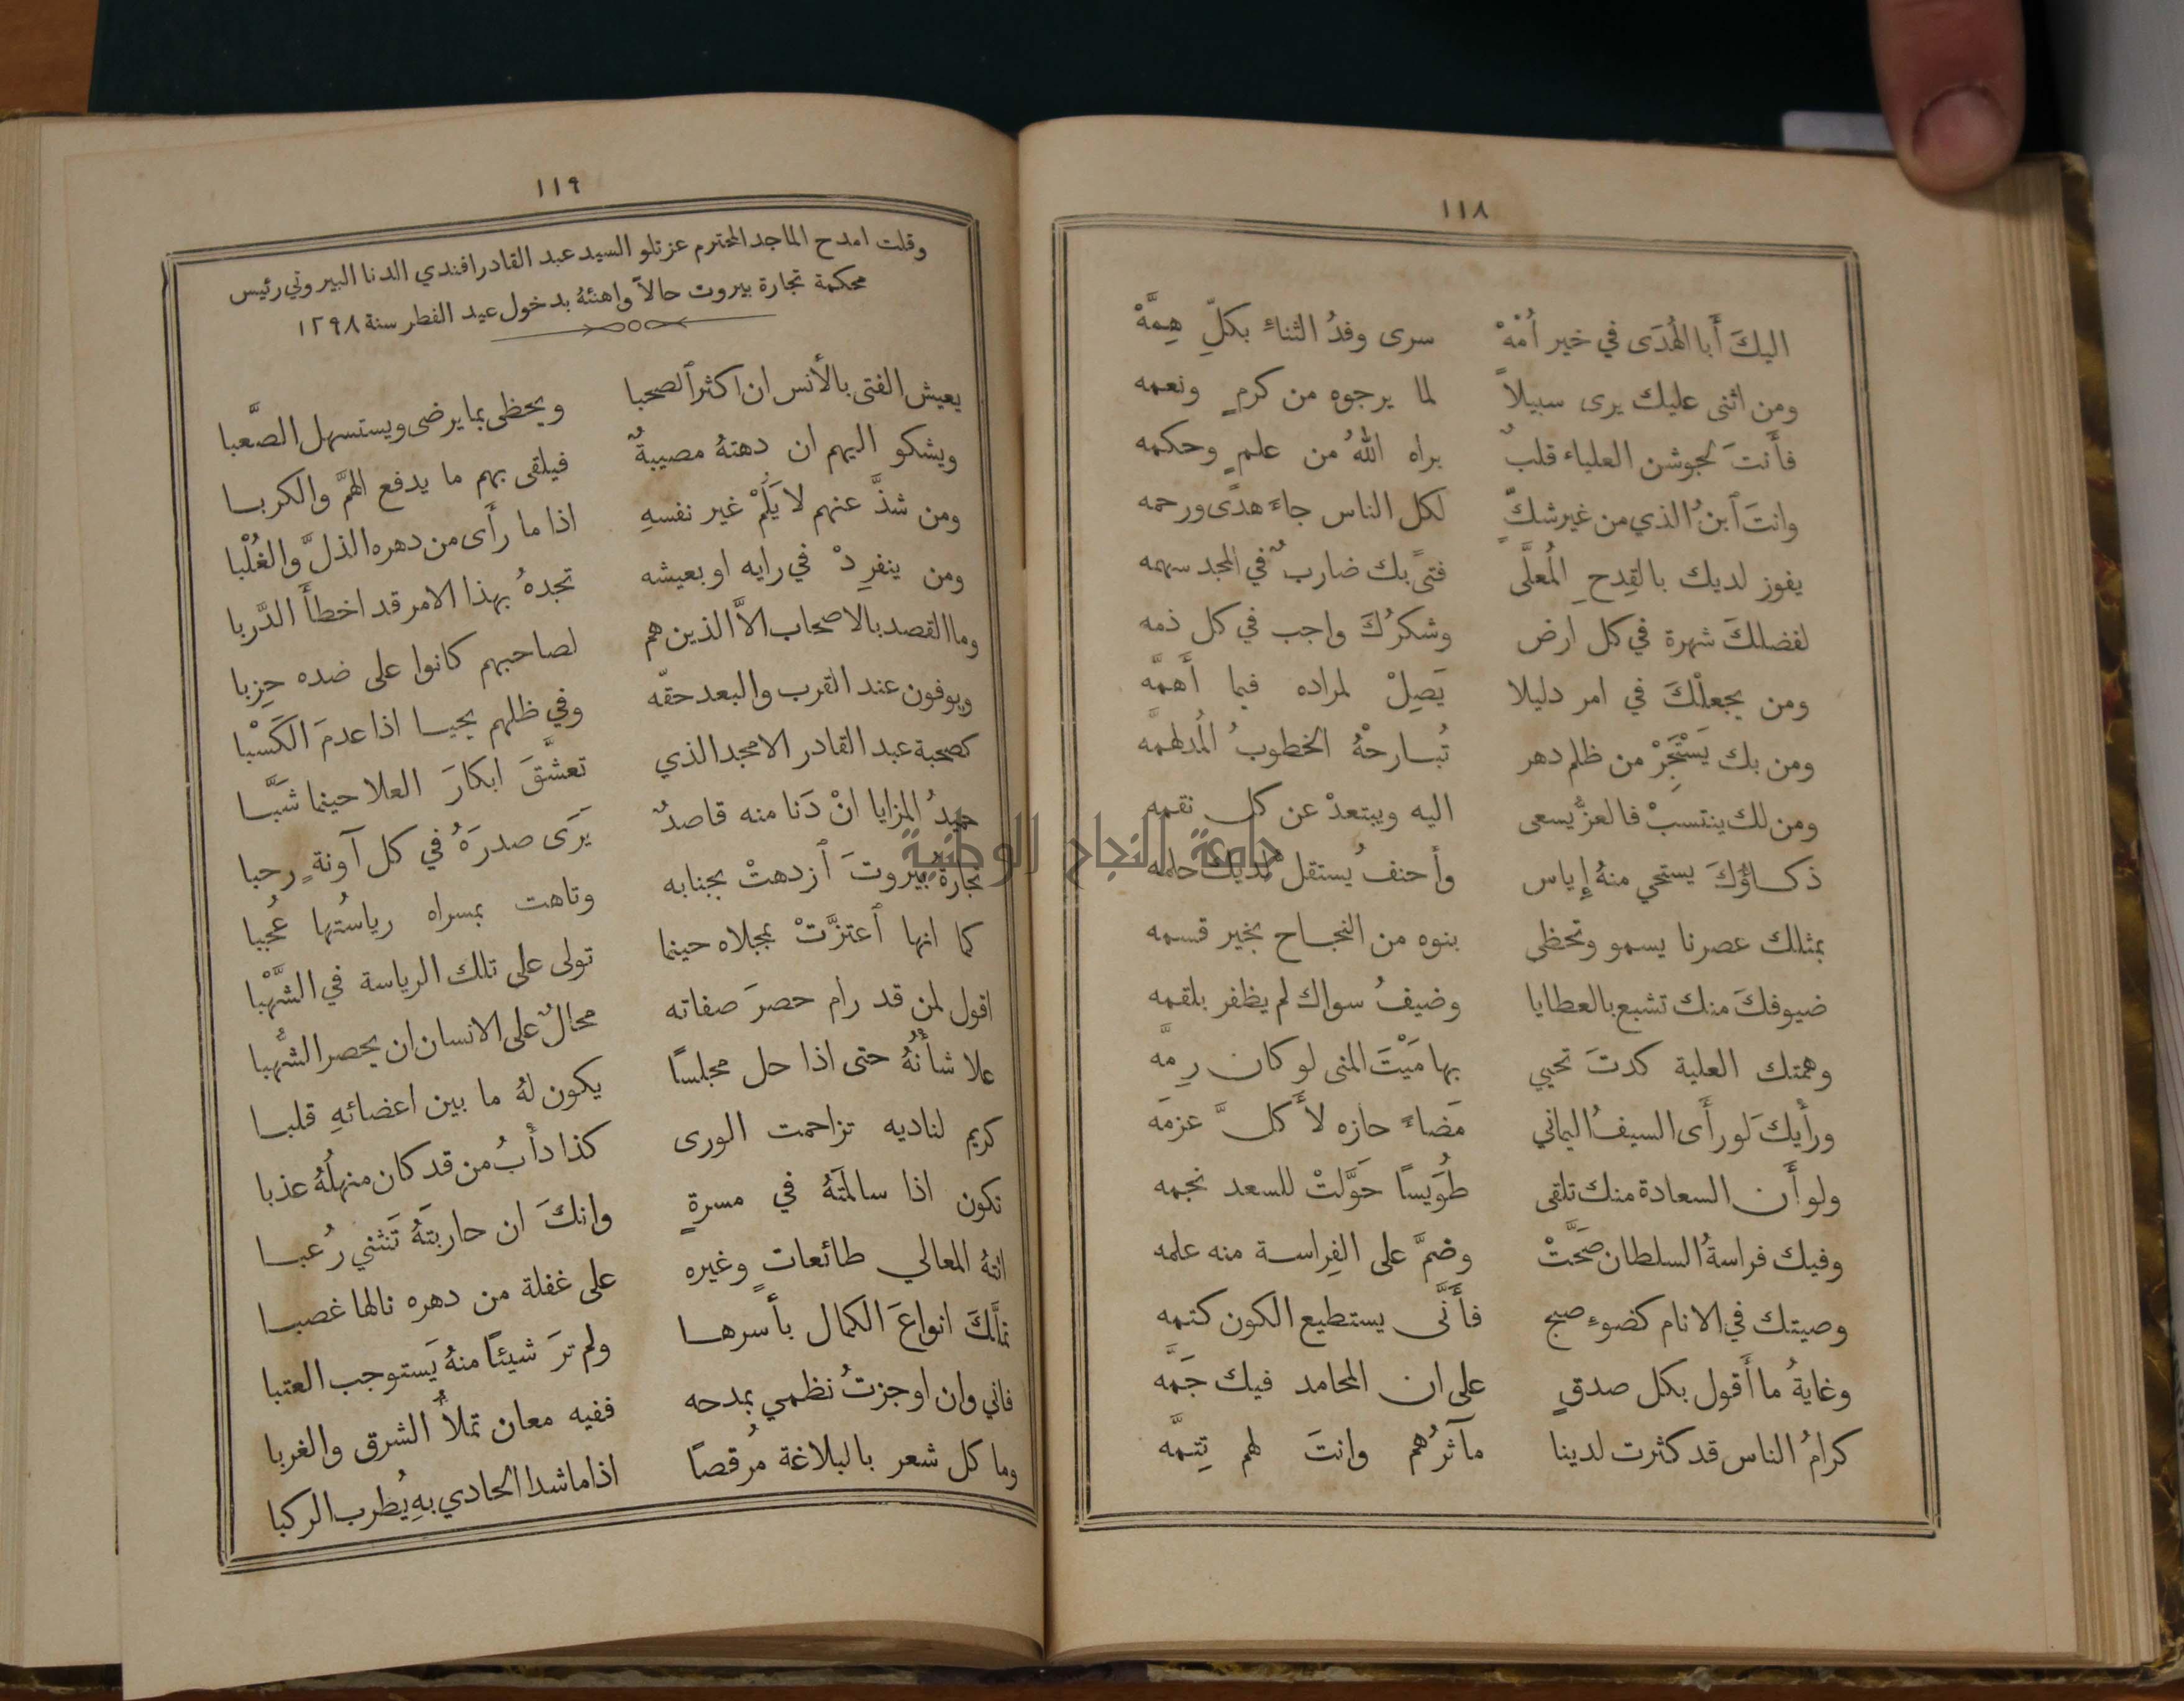 ١١٨
اليكَ أَبا الهُدَى في خير أُمَّهْ سرى وفدُ الثناءِ بكلِّ هِمَّهْ
ومن اثنى عليك يرى سبيلاً لما يرجوه من كرمٍ ونعمه
فأَنتَ لجوشن العلياء قلبٌ براه اللهُ من علمٍ وحكمه
وانتَ ٱبنُ الذي من غير شكٍّ لكل الناس جاءَ هدًى ورحمه
يفوز لديك بالقِدحِ المُعلَّى فتًى بك ضاربٌ في المجد سهمه
لفضلكَ شهرة في كل ارض وشكرُكَ واجب في كل ذمه
ومن يجعلْكَ في امر دليلا يَصِلْ لمراده فيما أَهمَّه
ومن بك يَسْتَجِرْ من ظلم دهر تُبارحْهُ الخطوبُ المُدلهمَّه
ومن لك ينتسبْ فالعزُّ يسعى اليه ويبتعدْ عن كل نقمه
ذكاؤُكَ يستحي منهُ إِياس وأَحنفُ يستقل لديك حلمه
بمثلك عصرنا يسمو وتحظى بنوه من النجاح بخير قسمه
ضيوفكَ منك تشبع بالعطايا وضيفُ سواك لم يظفر بلقمه
وهمتك العلية كدتَ تحيي بها مَيْتَ المنى لو كان رِمَّه
ورأْيكَ لو رأَى السيفُ اليماني مَضاءً حازه لأَكلَّ عزمَه
ولو أَن السعادة منك تلقى طُوَيسًا حَوَّلتْ للسعد نجمه
وفيك فراسةُ السلطان صَحَّتْ وضمَّ على الفِراسة منه علمه
وصيتك في الانام كضوءِ صبح فأَنَّى يستطيع الكون كتمه
وغايةُ ما أَقول بكل صدقٍ على ان المحامد فيك جَمَّه
كرامُ الناس قد كثرت لدينا مآثرُهم وانتَ لهم تِتمَّه
١١٩
وقلت امدح الماجد المحترم عزتلو السيد عبد القادر افندي الدنا البيروتي رئيس
محكمة تجارة بيروت حالاً واهنئهُ بدخول عيد الفطر سنة ١٢٩٨
يعيش الفتى بالأنس ان اكثر ٱلصحبا ويحظى بما يرضى ويستسهل الصَّعبا
ويشكو اليهم ان دهتهُ مصيبةٌ فيلقى بهم ما يدفع الهمَّ والكربا
ومن شذَّ عنهم لا يَلُمْ غير نفسهِ اذا ما رأَى من دهره الذلَّ والغُلْبا
ومن ينفرِدْ في رايه او بعيشه تجدهُ بهذا الامر قد اخطأَ الدَّربا
وما القصد بالاصحاب الاَّ الذين هم لصاحبهم كانوا على ضده حِزبا
ويوفون عند القرب والبعد حقّه وفي ظلهم يحيا اذا عدمَ الكَسْبا
كصحبة عبد القادر الامجد الذي تعشَّقَ ابكارَ العلا حينما شَبَّا
حميدُ المزايا انْ دَنا منه قاصدٌ يَرَى صدرَهُ في كل آونةٍ رحبا
تجارةُ بيروتَ ٱزدهتْ بجنابه وتاهت بمسراه رياستُها عُجبا
كما انها ٱعتزَّتْ بمجلاه حينما تولى على تلك الرياسة في الشَّهْبا
اقول لمن قد رام حصرَ صفاته محالٌ على الانسان ان يحصر الشُّهبا
علا شأنُهُ حتى اذا حل مجلسًا يكون لهُ ما بين اعضائهِ قلبا
كريم لناديه تزاحمت الورى كذا دأْبُ من قد كان منهلُهُ عذبا
تكون اذا سالمتَهُ في مسرةٍ وانكَ ان حاربتَهُ تَنثني رُعبا
اتتهُ المعالي طائعاتٍ وغيره على غفلة من دهره نالها غصبا
تملَّكَ انواعَ الكمال بأسرها ولم ترَ شيئًا منهُ يَستوجب العتبا
فاني وان اوجزتُ نظمي بمدحه ففيه معان تملأُ الشرق والغربا
وما كل شعر بالبلاغة مُرقصًا اذا ما شدا الحادي بهِ يُطرب الركبا
جامعة النجاح الوطنية